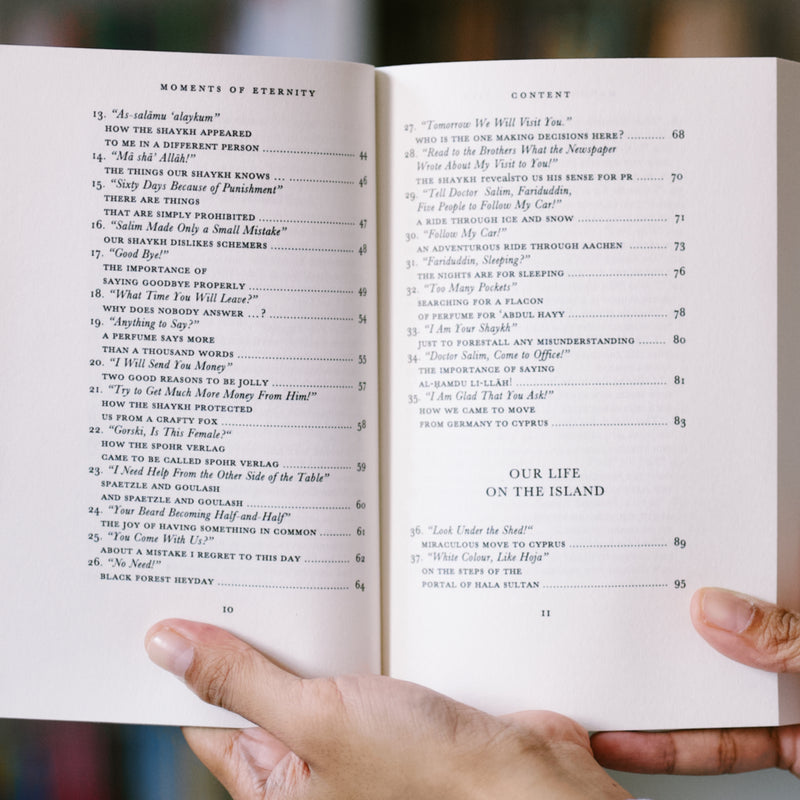 MOMENTS OF ETERNITY
13. "As-salāmu ‘alaykum"
HOW THE SHAYKH APPEARED
TO ME IN A DIFFERENT PERSON ........................ 44
14. "Mā shā’ Allāh!"
THE THINGS OUR SHAYKH KNOWS ... ................. 46
15. "Sixty Days Because of Punishment"
THERE ARE THINGS
THAT ARE SIMPLY PROHIBITED ........................ 47
16. "Salim Made Only a Small Mistake"
OUR SHAYKH DISLIKES SCHEMERS ...................... 48
17. "Good Bye!"
THE IMPORTANCE OF
SAYING GOODBYE PROPERLY ........................... 49
18. "What Time You Will Leave?"
WHY DOES NOBODY ANSWER ...? ....................... 54
19. "Anything to Say?"
A PERFUME SAYS MORE
THAN A THOUSAND WORDS ............................. 55
20. "I Will Send You Money"
TWO GOOD REASONS TO BE JOLLY ...................... 57
21. "Try to Get Much More Money From Him!"
HOW THE SHAYKH PROTECTED
US FROM A CRAFTY FOX .............................. 58
22. "Gorski, Is This Female?"
HOW THE SPOHR VERLAG
CAME TO BE CALLED SPOHR VERLAG .................... 59
23. "I Need Help From the Other Side of the Table"
SPAETZLE AND GOULASH
AND SPAETZLE AND GOULASH .......................... 60
24. "Your Beard Becoming Half-and-Half"
THE JOY OF HAVING SOMETHING IN COMMON ............. 61
25. "You Come With Us?"
ABOUT A MISTAKE I REGRET TO THIS DAY .............. 62
26. "No Need!"
BLACK FOREST HEYDAY ............................... 64
10
CONTENT
27. "Tomorrow We Will Visit You."
WHO IS THE ONE MAKING DECISIONS HERE? .......... 68
28. "Read to the Brothers What the Newspaper
Wrote About My Visit to You!"
THE SHAYKH revealsTO US HIS SENSE FOR PR ....... 70
29. "Tell Doctor Salim, Fariduddin,
Five People to Follow My Car!"
A RIDE THROUGH ICE AND SNOW ....................... 71
30. "Follow My Car!"
AN ADVENTUROUS RIDE THROUGH AACHEN .......... 73
31. "Fariduddin, Sleeping?"
THE NIGHTS ARE FOR SLEEPING ....................... 76
32. "Too Many Pockets"
SEARCHING FOR A FLACON
OF PERFUME FOR ‘ABDUL HAYY ....................... 78
33. "I Am Your Shaykh"
JUST TO FORESTALL ANY MISUNDERSTANDING ....... 80
34. "Doctor Salim, Come to Office!"
THE IMPORTANCE OF SAYING
AL-ḤAMDU LI-LLĀH! ................................. 81
35. "I Am Glad That You Ask!"
HOW WE CAME TO MOVE
FROM GERMANY TO CYPRUS ............................ 83
OUR LIFE
ON THE ISLAND
36. "Look Under the Shed!"
MIRACULOUS MOVE TO CYPRUS ......................... 89
37. "White Colour, Like Hoja"
ON THE STEPS OF THE
PORTAL OF HALA SULTAN ............................. 95
11